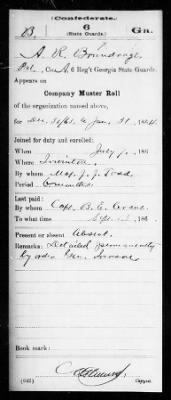 Confederate.
B. 6 Ga.
(State Guards.)
A. R.
Pvt., Co. A, 6 Reg't Georgia State Guards.
Appears on
Company Muster Roll
of the organization named above,
for Dec 31/63 to Jan. 31, 1864.
Joined for duty and enrolled:
When July 186
Where
By whom Maj. J. J. Todd
Period
Last paid:
By whom Capt. B. E.
To what time Sept. 186
Present or absent Absent.
Remarks: Detailed permanently
by order Gen.
Book mark:
(642) Copyist.